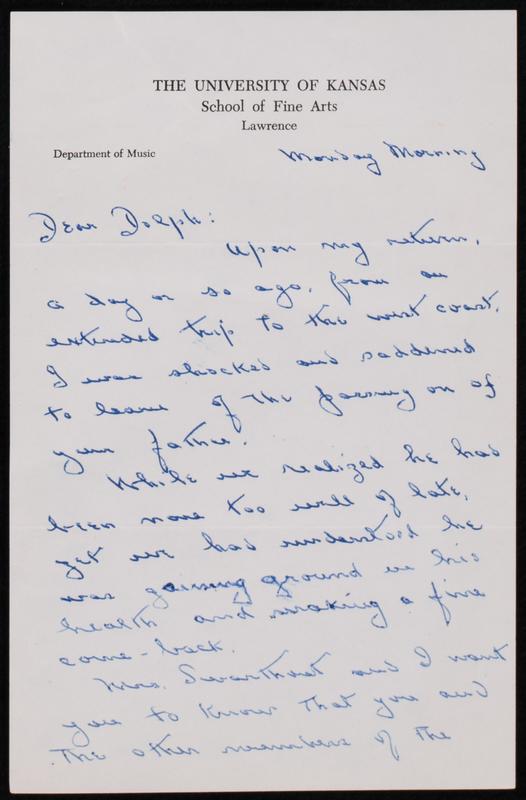 THE UNIVERSITY OF KANSAS
School of Fine Arts
Lawrence
Department of Music
Monday Morning
Dear Dolph:
Upon my return,
a day or so ago, from an
extended trip to the west coast,
I was shocked and saddened
to learn of the passing on of
your father.
While we realized he had
been none too well of late,
yet we had understood he
was gaining ground in his
health and making a fine
come-back.
Mrs. Swarthout and I want
you to know that you and
the other members of the